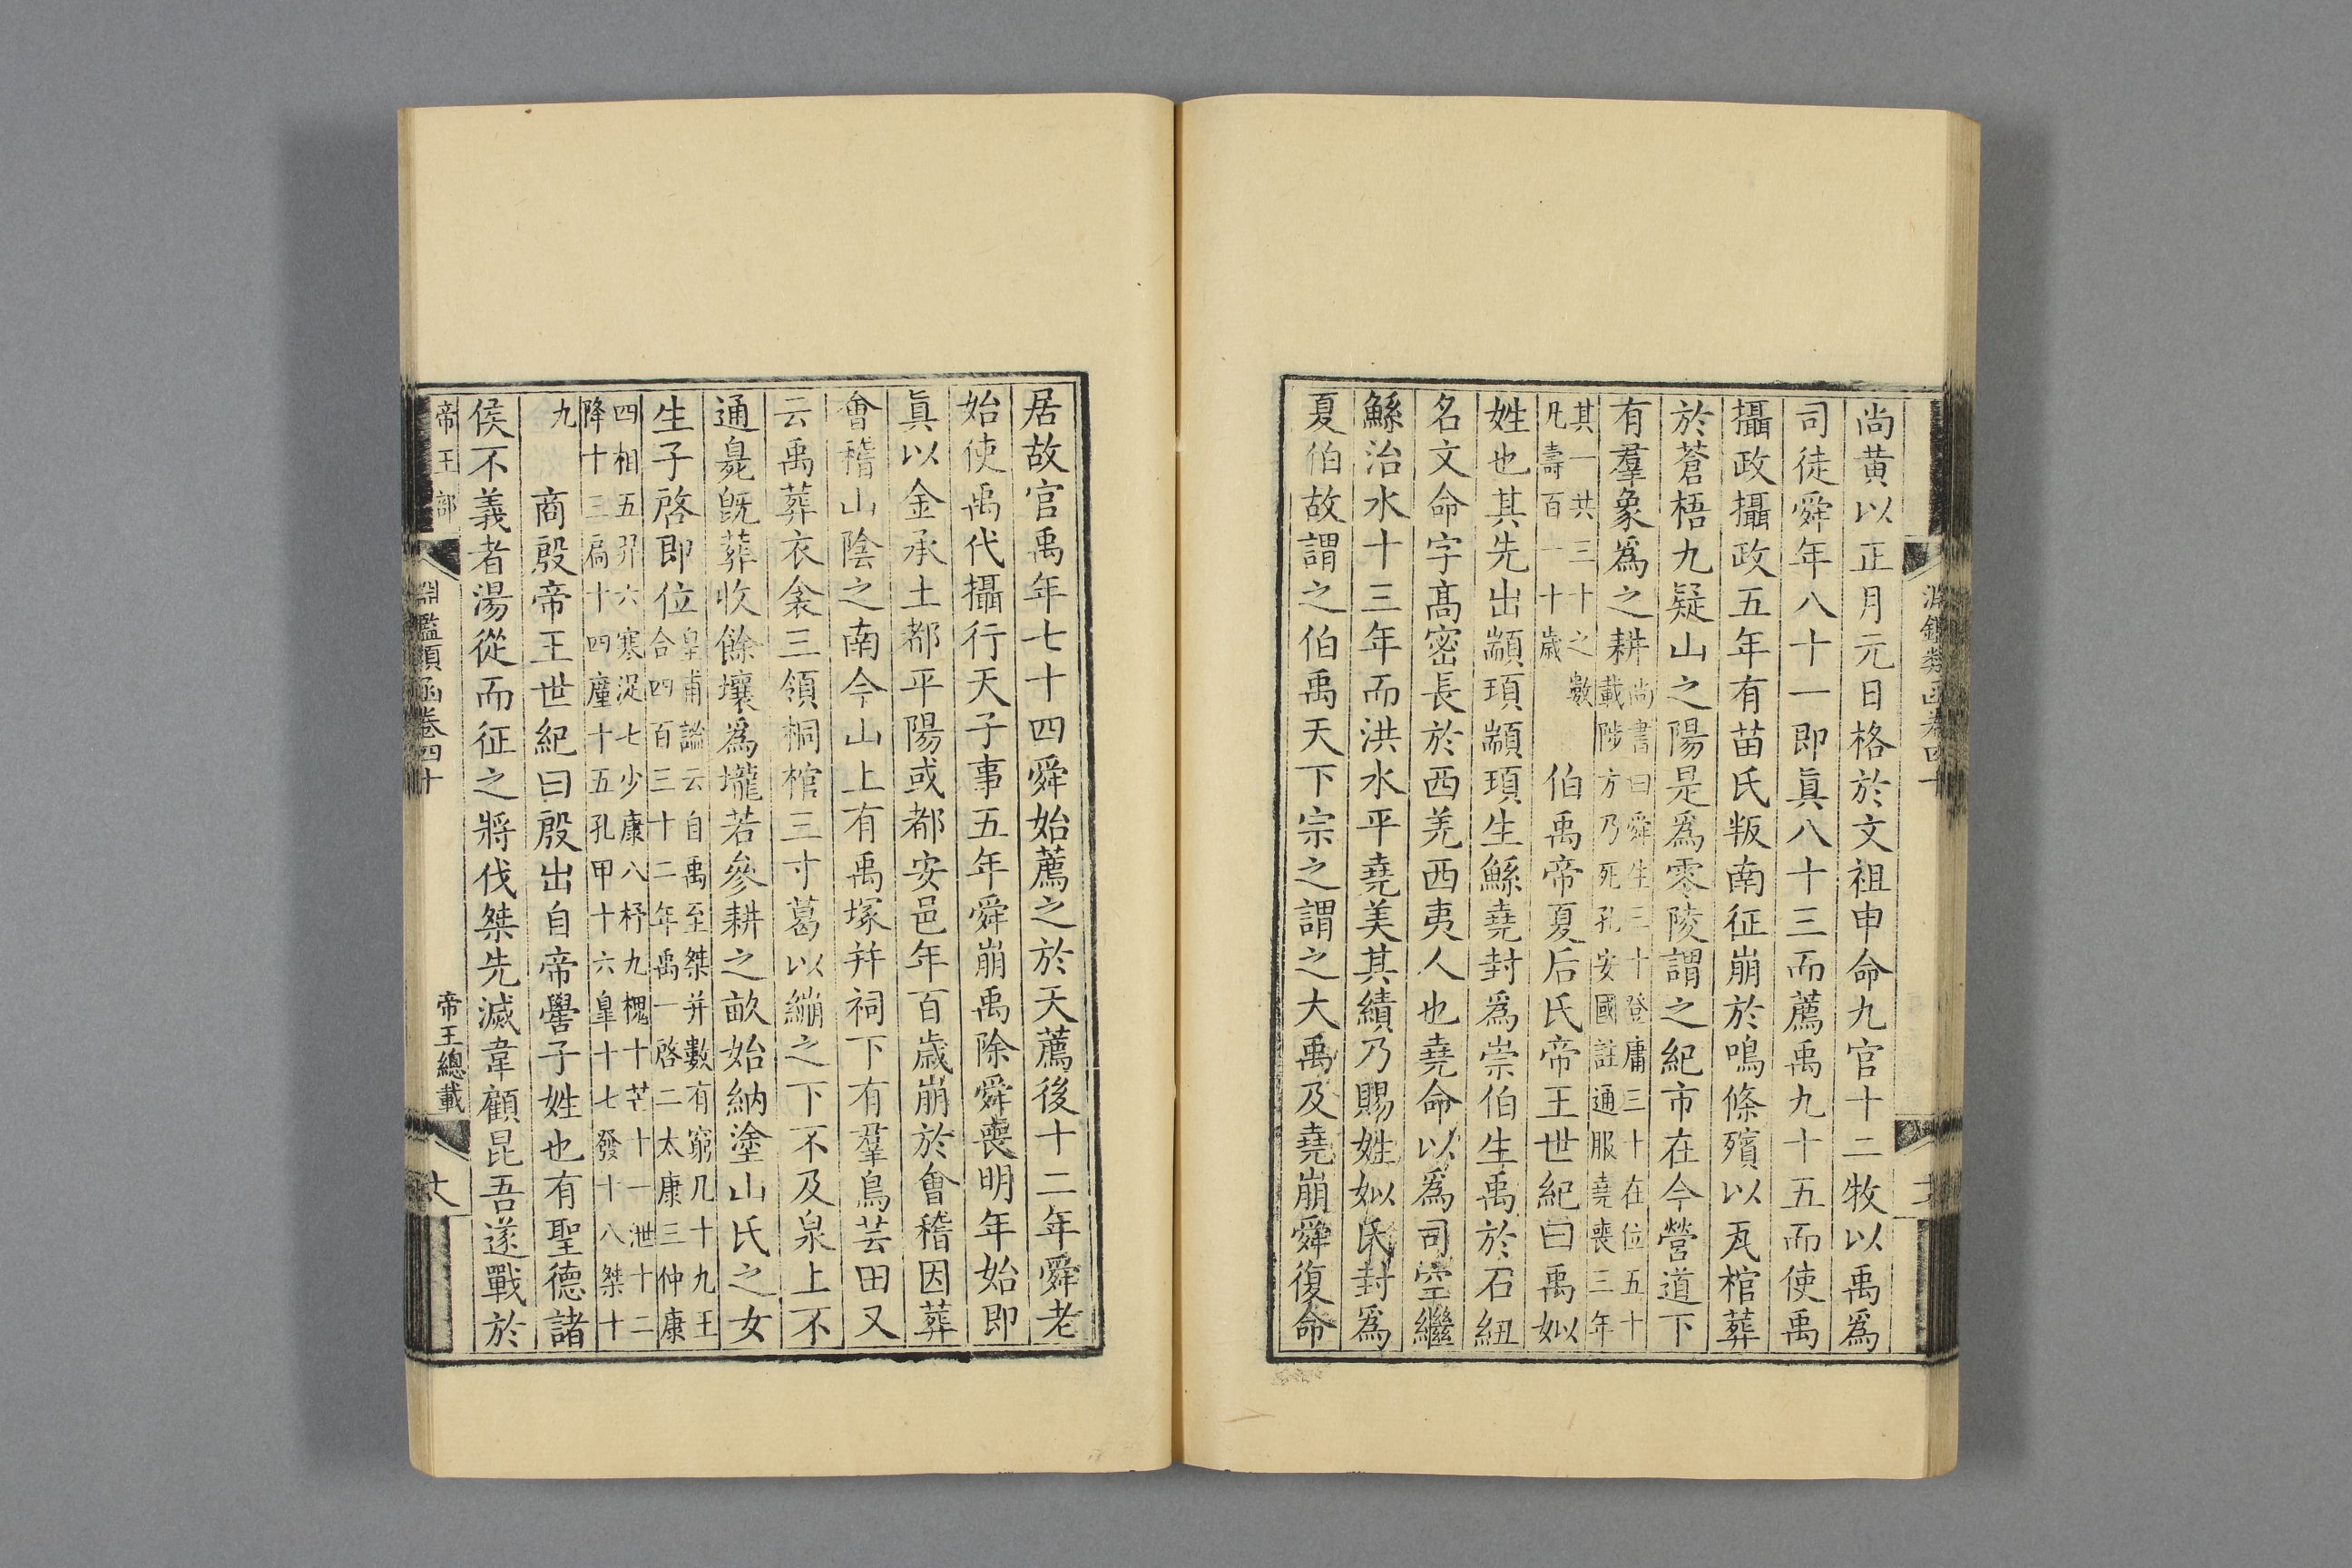 尚黃以正月元日格於文祖申命九官十二牧以禹爲
司徒舜年八十一即眞八十三而薦禹九十五而使禹
攝政攝政五年有苗氏叛南征崩於鳴條殯以瓦棺葬
於蒼梧九疑山之陽是爲零陵謂之紀市在今營道下
有羣象爲之耕
尚書曰舜生三十登庸三十在位五十
載陟方乃死孔安國註通服堯喪三年
其一共三十之數
凡壽百一十歲
伯禹帝夏后氏帝王世紀曰禹姒
姓也其先出顓頊顓頊生鯀堯封爲崇伯生禹於石紐
名文命字高密長於西羌西夷人也堯命以爲司空繼
鯀治水十三年而洪水平堯美其績乃賜姓姒氏封爲
夏伯故謂之伯禹天下宗之謂之大禹及堯崩舜復命
居故官禹年七十四舜始薦之於天薦後十二年舜老
始使禹代攝行天子事五年舜崩禹除舜喪明年始即
眞以金承土都平陽或都安邑年百歲崩於會稽因葬
會稽山陰之南今山上有禹塚并祠下有羣鳥芸田又
云禹葬衣衾三領桐棺三寸葛以繃之下不及泉上不
通臭旣葬收餘壤爲壠若參耕之畝始納塗山氏之女
生子啓即位
皇甫謐云自禹至桀并數有窮凡十九王
合四百三十二年禹一啓二太康三仲康
四相五羿六寒浞七少康八杼九槐十芒十一泄十二
降十三扃十四廑十五孔甲十六皐十七發十八桀十
九
商殷帝王世紀曰殷出自帝嚳子姓也有聖德諸
侯不義者湯從而征之將伐桀先滅韋顧昆吾遂戰於
帝王部
淵鑑類函卷四十
帝王總載